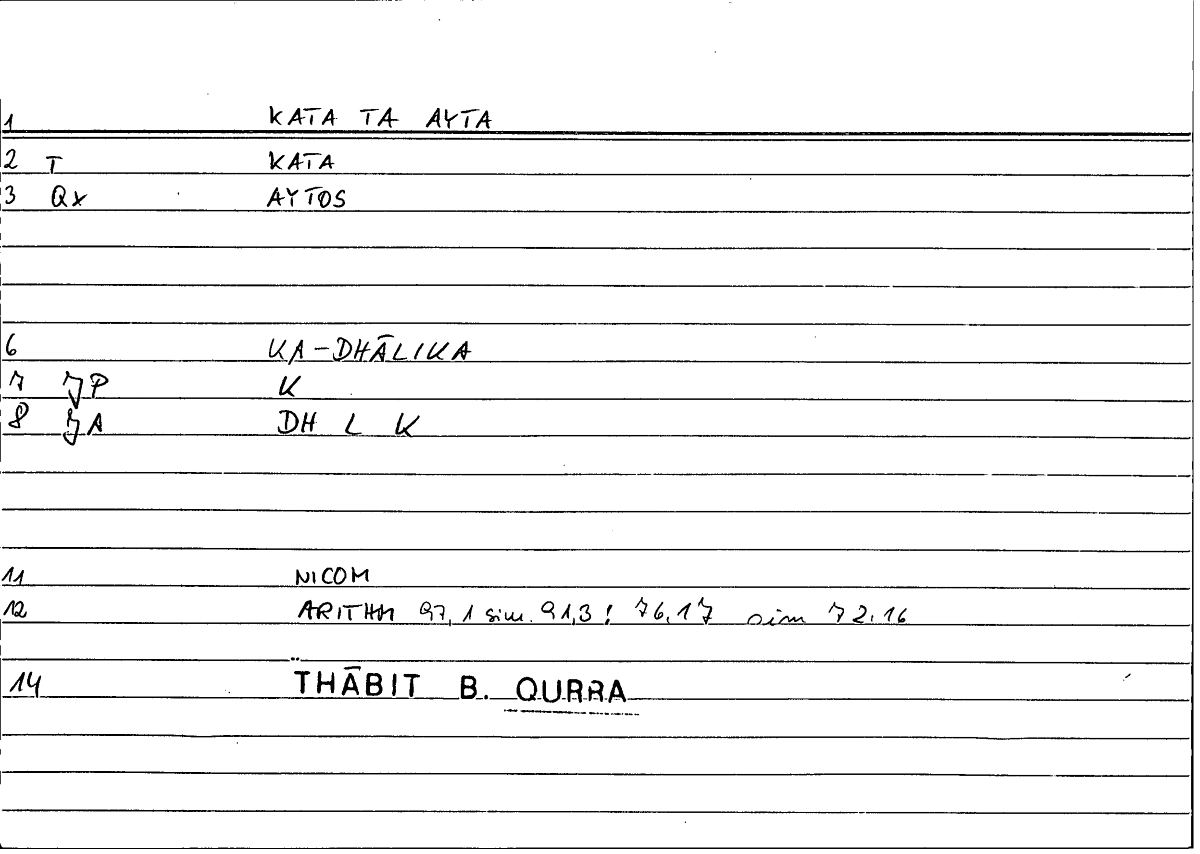 1 KATA TA AYTA
2 T KATA
3 Qx AYTOS
6 KA-DHĀLIKA
7 JP K
8 JA DH L K
11 NICOM
12 ARITHM 97,1 sim. 91,3! 76.17 sim 72.16
14 THĀBIT B. QURRA